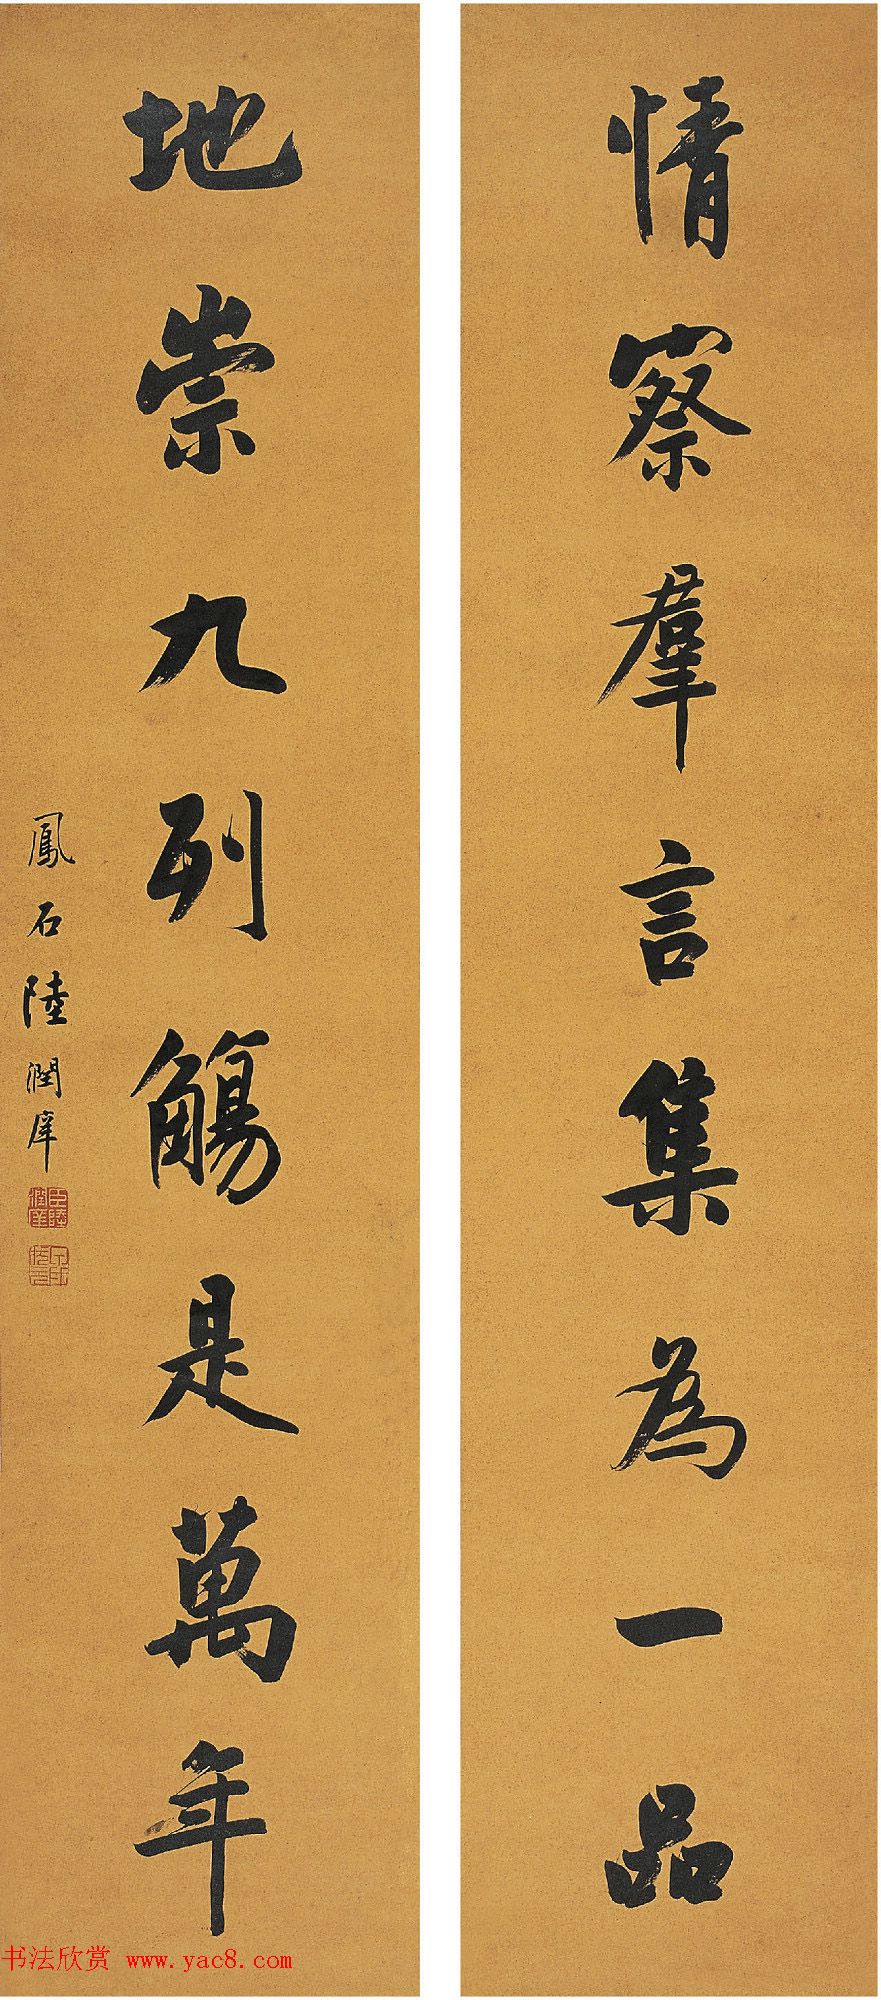 情察羣言集為一品
地崇九列觴是萬年
鳳石陸潤庠
臣陸潤庠
书法欣赏 www.yac8.com